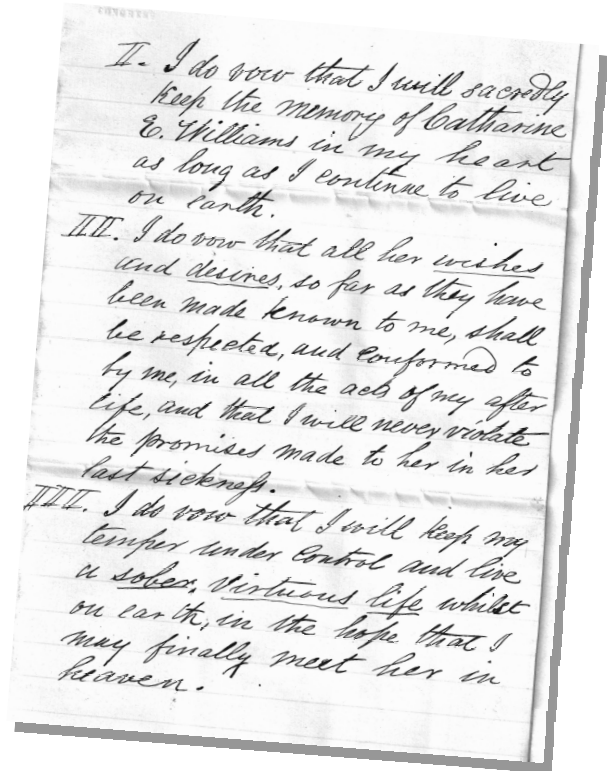 II. I do vow that I will sacredly
keep the memory of Catharine
E. Williams in my heart
as long as I continue to live
on earth.
III. I do vow that all her wishes
and desires, so far as they have
been made known to me, shall
be respected, and conformed to
by me, in all the acts of my after
life, and that I will never violate
the promises made to her in her
last sickness.
IIII. I do vow that I will keep my
temper under control and live
a sober, virtuous life whilst
on earth, in the hope that I
may finally meet her in
heaven.